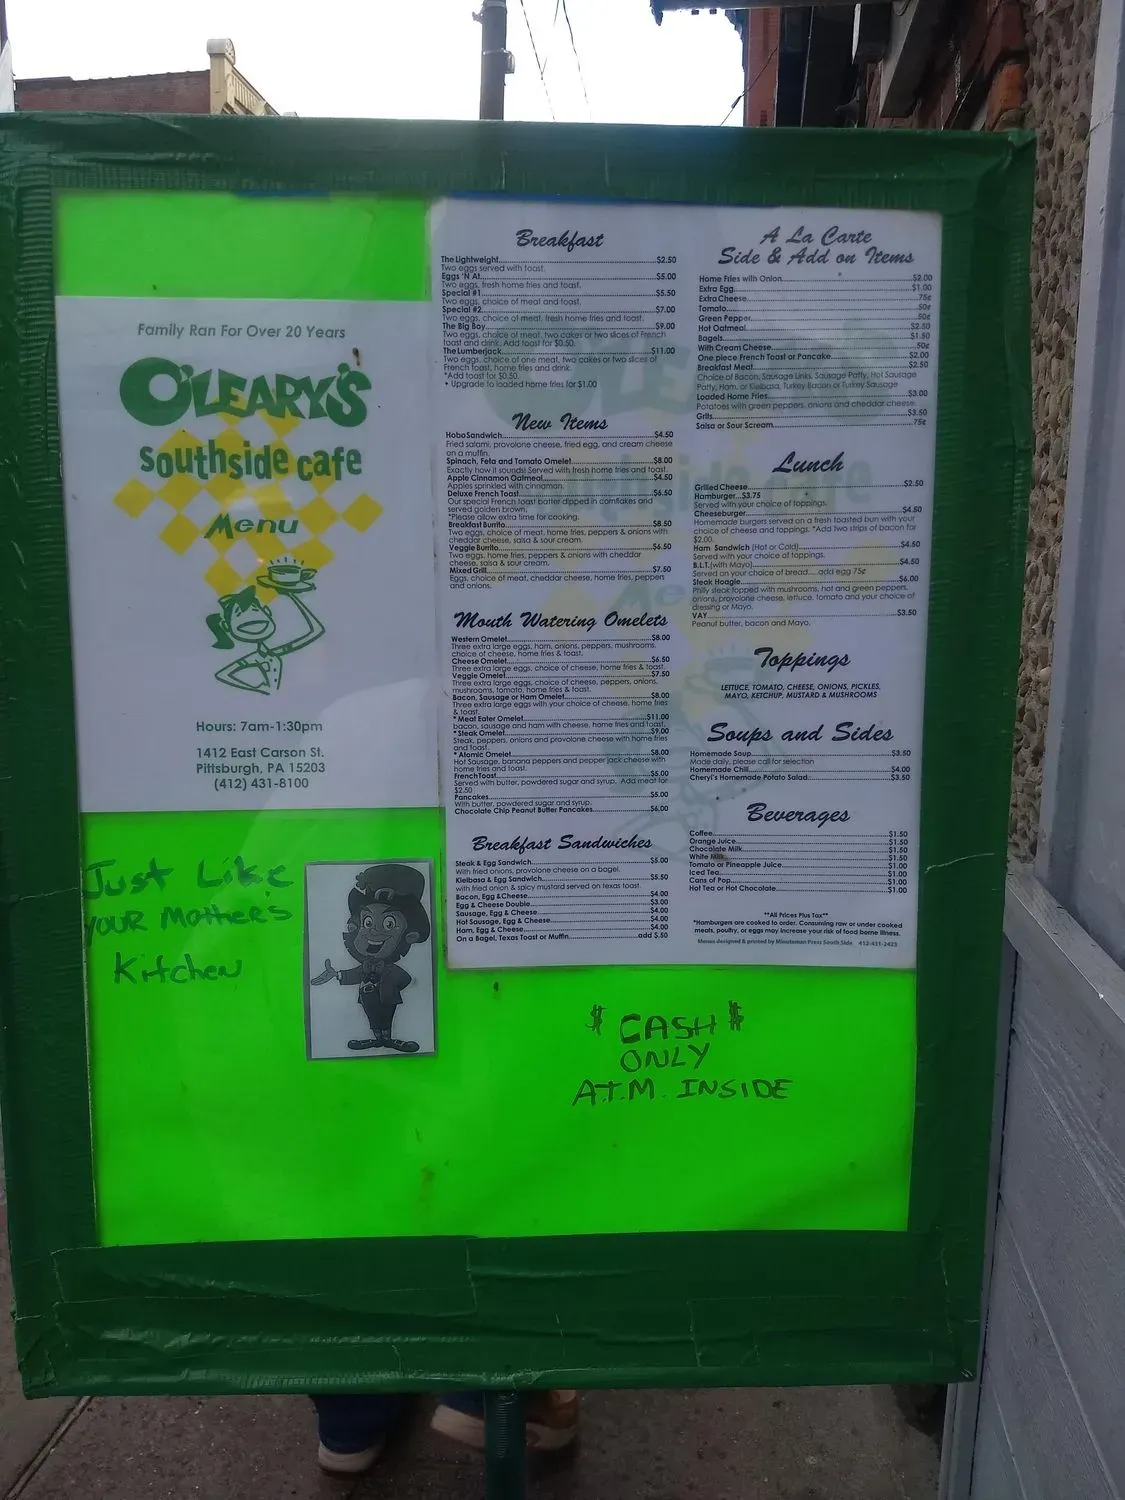 Family Ran For Over 20 Years
O'LEARY'S
southside cafe
Menu
Hours: 7am-1:30pm
1412 East Carson St.
Pittsburgh, PA 15203
(412) 431-8100
Just Like
YOUR Mother's
Kitchen
Breakfast
The Lightweight $2.50
Two eggs served with toast.
Eggs 'N At $5.00
Two eggs, fresh home fries and toast.
Special #1 $5.50
Two eggs, choice of meat and toast.
Special #2 $7.00
Two eggs, choice of meat, fresh home fries and toast.
The Big Boy $9.00
Two eggs, choice of meat, two cakes or two slices of French
toast and drink. Add toast for $0.50.
The Lumberjack $11.00
Two eggs, choice of one meat, two cakes or two slices of
French toast, home fries and drink.
*Add toast for $0.50.
• Upgrade to loaded home fries for $1.00
New Items
Hobo Sandwich $4.50
Fried salami, provolone cheese, fried egg, and cream cheese
on a muffin.
Spinach, Feta and Tomato Omelet $8.00
Exactly how it sounds! Served with fresh home fries and toast.
Apple Cinnamon Oatmeal $4.50
Apples sprinkled with cinnamon.
Deluxe French Toast $6.50
Our special French toast batter dipped in cornflakes and
served golden brown.
*Please allow extra time for cooking.
Breakfast Burrito $8.50
Two eggs, choice of meat, home fries, peppers & onions with
cheddar cheese, salsa & sour cream.
Veggie Burrito $6.50
Two eggs, home fries, peppers & onions with cheddar
cheese, salsa & sour cream.
Mixed Grill $7.50
Eggs, choice of meat, cheddar cheese, home fries, peppers
and onions.
Mouth Watering Omelets
Western Omelet $8.00
Three extra large eggs, ham, onions, peppers, mushrooms,
choice of cheese, home fries & toast.
Cheese Omelet $6.50
Three extra large eggs, choice of cheese, home fries & toast.
Veggie Omelet $7.50
Three extra large eggs, choice of cheese, peppers, onions,
mushrooms, tomato, home fries & toast.
Bacon, Sausage or Ham Omelet $8.00
Three extra large eggs with your choice of cheese, home fries
& toast.
* Meat Eater Omelet $11.00
bacon, sausage and ham with cheese, home fries and toast.
* Steak Omelet $9.00
Steak, peppers, onions and provolone cheese with home fries
and toast.
* Atomic Omelet $8.00
Hot Sausage, banana peppers and pepper jack cheese with
home fries and toast.
French Toast $5.00
Served with butter, powdered sugar and syrup. Add meat for
$2.50
Pancakes $5.00
With butter, powdered sugar and syrup.
Chocolate Chip Peanut Butter Pancakes $6.00
Breakfast Sandwiches
Steak & Egg Sandwich $5.00
With fried onions, provolone cheese on a bagel.
Kielbasa & Egg Sandwich $5.50
with fried onion & spicy mustard served on texas toast.
Bacon, Egg & Cheese $4.00
Egg & Cheese Double $3.00
Sausage, Egg & Cheese $4.00
Hot Sausage, Egg & Cheese $4.00
Ham, Egg & Cheese $4.00
On a Bagel, Texas Toast or Muffin add $.50
A La Carte
Side & Add on Items
Home Fries with Onion $2.00
Extra Egg $1.00
Extra Cheese .75¢
Tomato .50¢
Green Pepper .50¢
Hot Oatmeal $2.50
Bagels $1.50
With Cream Cheese .50¢
One piece French Toast or Pancake $2.00
Breakfast Meat $2.50
Choice of Bacon, Sausage Links, Sausage Patty, Hot Sausage
Patty, Ham, or Kielbasa, Turkey Bacon or Turkey Sausage
Loaded Home Fries $3.00
Potatoes with green peppers, onions and cheddar cheese.
Grits $3.50
Salsa or Sour Scream .75¢
Lunch
Grilled Cheese $2.50
Hamburger...$3.75
Served with your choice of toppings.
Cheeseburger $4.50
Homemade burgers served on a fresh toasted bun with your
choice of cheese and toppings. *Add two strips of bacon for
$2.00.
Ham Sandwich (Hot or Cold) $4.50
Served with your choice of toppings.
B.L.T. (with Mayo) $4.50
Served on your choice of bread.....add egg 75¢
Steak Hoagie $6.00
Philly steak topped with mushrooms, hot and green peppers,
onions, provolone cheese, lettuce, tomato and your choice of
dressing or Mayo.
VAY $3.50
Peanut butter, bacon and Mayo.
Toppings
LETTUCE, TOMATO, CHEESE, ONIONS, PICKLES,
MAYO, KETCHUP, MUSTARD & MUSHROOMS
Soups and Sides
Homemade Soup $3.50
Made daily, please call for selection
Homemade Chili $4.00
Cheryl's Homemade Potato Salad $3.50
Beverages
Coffee $1.50
Orange Juice $1.50
Chocolate Milk $1.50
White Milk $1.50
Tomato or Pineapple Juice $1.00
Iced Tea $1.00
Cans of Pop $1.00
Hot Tea or Hot Chocolate $1.00
**All Prices Plus Tax**
*Hamburgers are cooked to order. Consuming raw or under cooked
meats, poultry, or eggs may increase your risk of food borne illness.
Menus designed & printed by Minuteman Press South Side 412-431-2423
$ CASH $
ONLY
A.T.M. INSIDE